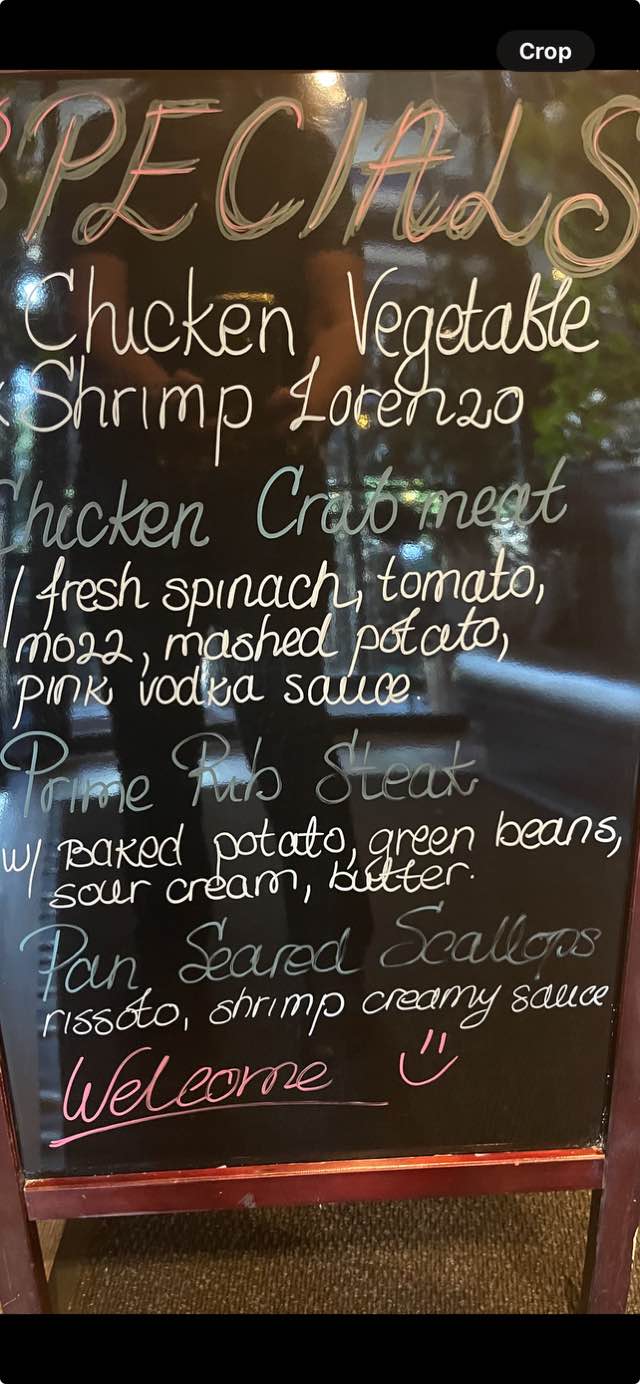 Crop
SPECIALS
Chicken Vegetable
Shrimp Lorenzo
Chicken Crab meat
/ fresh spinach, tomato,
mozz, mashed potato,
pink vodka sauce.
Prime Rib Steak
w/ Baked potato, green beans,
sour cream, butter.
Pan Seared Scallops
rissoto, shrimp creamy sauce
Welcome